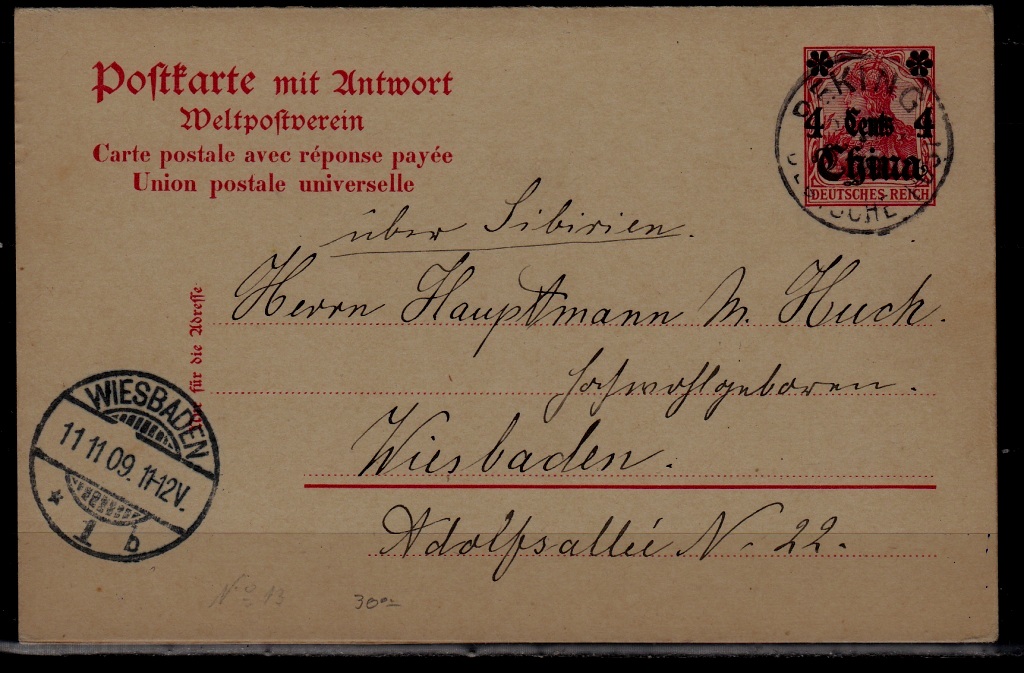 Postkarte mit Antwort
Weltpostverein
Carte postale avec réponse payée
Union postale universelle
PEKING
DEUTSCHE
4 Cents 4
China
DEUTSCHES REICH
über Sibirien.
Herrn Hauptmann M. Huch.
Hochwohlgeboren.
Wiesbaden.
Adolfsallée N. 22.
für die Adresse
WIESBADEN
11 11 09. 11-12V.
* 1 b
No 13